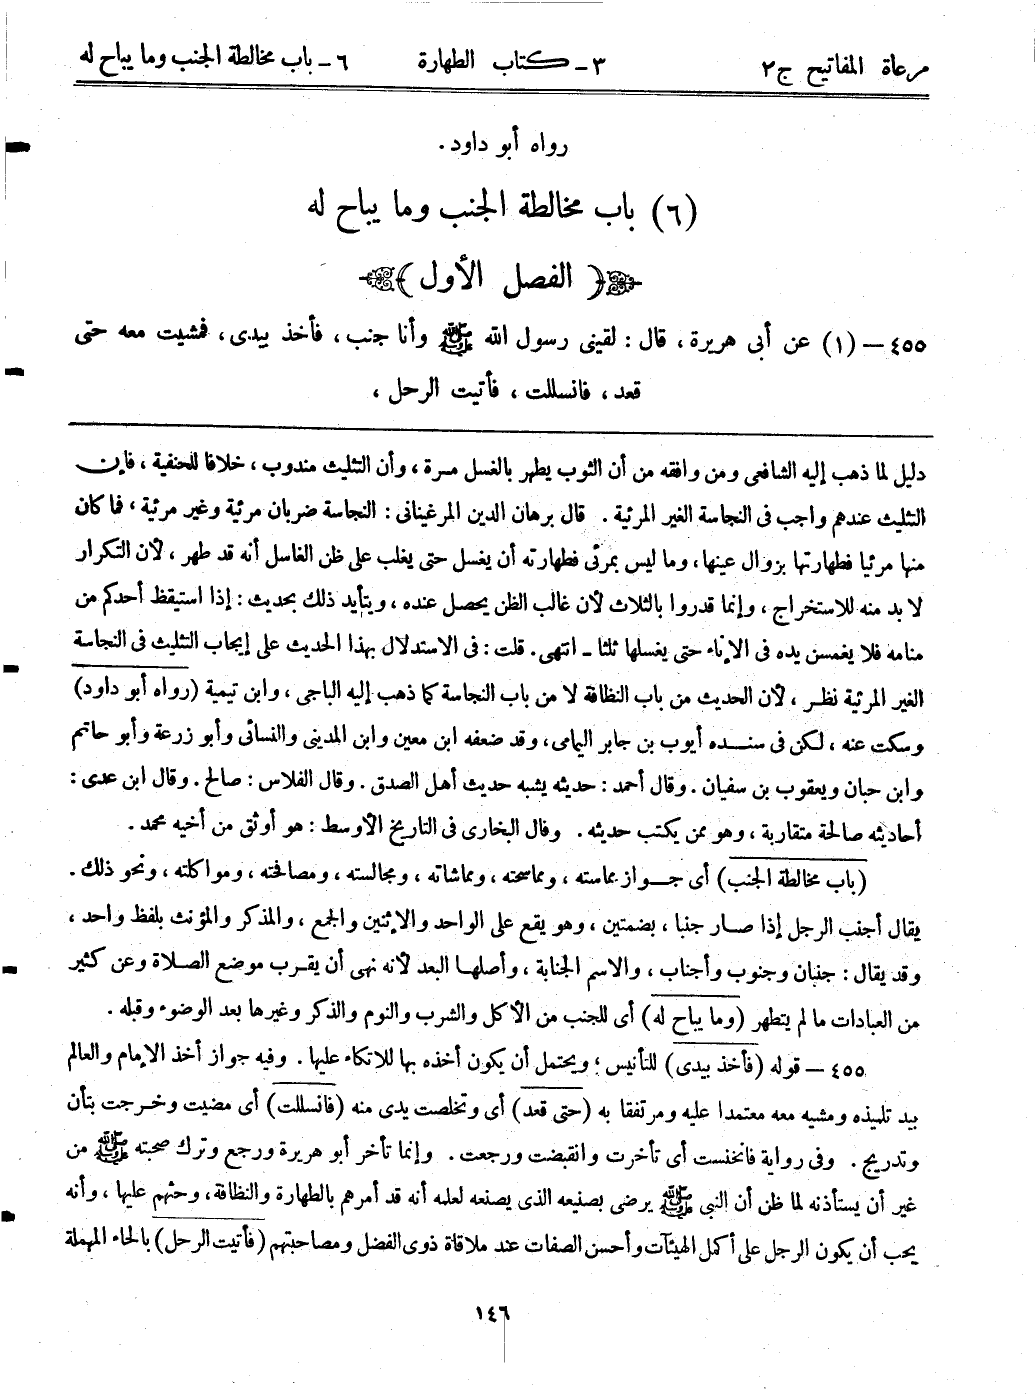 مرعاة المفاتيح ج٢ ٣ - كتاب الطهارة ٦ - باب مخالطة الجنب وما يباح له
رواه أبو داود.
(٦) باب مخالطة الجنب وما يباح له
﴿ الفصل الأول ﴾
٤٥٥ – (١) عن أبى هريرة، قال: لقينى رسول الله ﷺ وأنا جنب، فأخذ بيدى، فمشيت معه حتى
قعد، فانسللت، فأتيت الرحل،
دليل لما ذهب إليه الشافعى ومن وافقه من أن الثوب يطهر بالغسل مرة، وأن التثليث مندوب، خلافا للحنفية، فإن
التثليث عندهم واجب فى النجاسة الغير المرئية. قال برهان الدين المرغينانى: النجاسة ضربان مرئية وغير مرئية، فما كان
منها مرئيا فطهارتها بزوال عينها، وما ليس بمرئى فطهارته أن يغسل حتى يغلب على ظن الغاسل أنه قد طهر، لأن التكرار
لا بد منه للاستخراج، وإنما قدروا بالثلاث لأن غالب الظن يحصل عنده، ويتأيد ذلك بحديث: إذا استيقظ أحدكم من
منامه فلا يغمسن يده فى الإناء حتى يغسلها ثلثا - انتهى. قلت: فى الاستدلال بهذا الحديث على إيجاب التثليث فى النجاسة
الغير المرئية نظر، لأن الحديث من باب النظافة لا من باب النجاسة كما ذهب إليه الباجى، وابن تيمية (رواه أبو داود)
وسكت عنه، لكن فى سنده أيوب بن جابر اليمامى، وقد ضعفه ابن معين وابن المدينى والنسائى وأبو زرعة وأبو حاتم
وابن حبان ويعقوب بن سفيان. وقال أحمد: حديثه يشبه حديث أهل الصدق. وقال الفلاس: صالح. وقال ابن عدى:
أحاديثه صالحة متقاربة، وهو ممن يكتب حديثه. وقال البخارى فى التاريخ الأوسط: هو أوثق من أخيه محمد.
(باب مخالطة الجنب) أى جواز مماسته، ومماسحته، ومماشاته، ومجالسته، ومصافحته، ومواكلته، ونحو ذلك.
يقال أجنب الرجل إذا صار جنبا، بضمتين، وهو يقع على الواحد والإثنين والجمع، والمذكر والمؤنث بلفظ واحد،
وقد يقال: جنبان وجنوب وأجناب، والاسم الجنابة، وأصلها البعد لأنه نهى أن يقرب موضع الصلاة وعن كثير
من العبادات ما لم يتطهر (وما يباح له) أى للجنب من الأكل والشرب والنوم والذكر وغيرها بعد الوضوء وقبله.
٤٥٥ – قوله (فأخذ بيدى) للتأنيس؛ ويحتمل أن يكون أخذه بها للاتكاء عليها. وفيه جواز أخذ الإمام والعالم
بيد تلميذه ومشيه معه معتمدا عليه ومرتفقا به (حتى قعد) أى وتخلصت يدى منه (فانسللت) أى مضيت وخرجت بتأن
وتدريج. وفى رواية فانخنست أى تأخرت وانقبضت ورجعت. وإنما تأخر أبو هريرة ورجع وترك صحبته ﷺ من
غير أن يستأذنه لما ظن أن النبى ﷺ يرضى بصنيعه الذى يصنعه لعلمه أنه قد أمرهم بالطهارة والنظافة، وحثهم عليها، وأنه
يحب أن يكون الرجل على أكمل الهيئآت وأحسن الصفات عند ملاقاة ذوى الفضل ومصاحبتهم (فأتيت الرحل) بالحاء المهملة
١٤٦